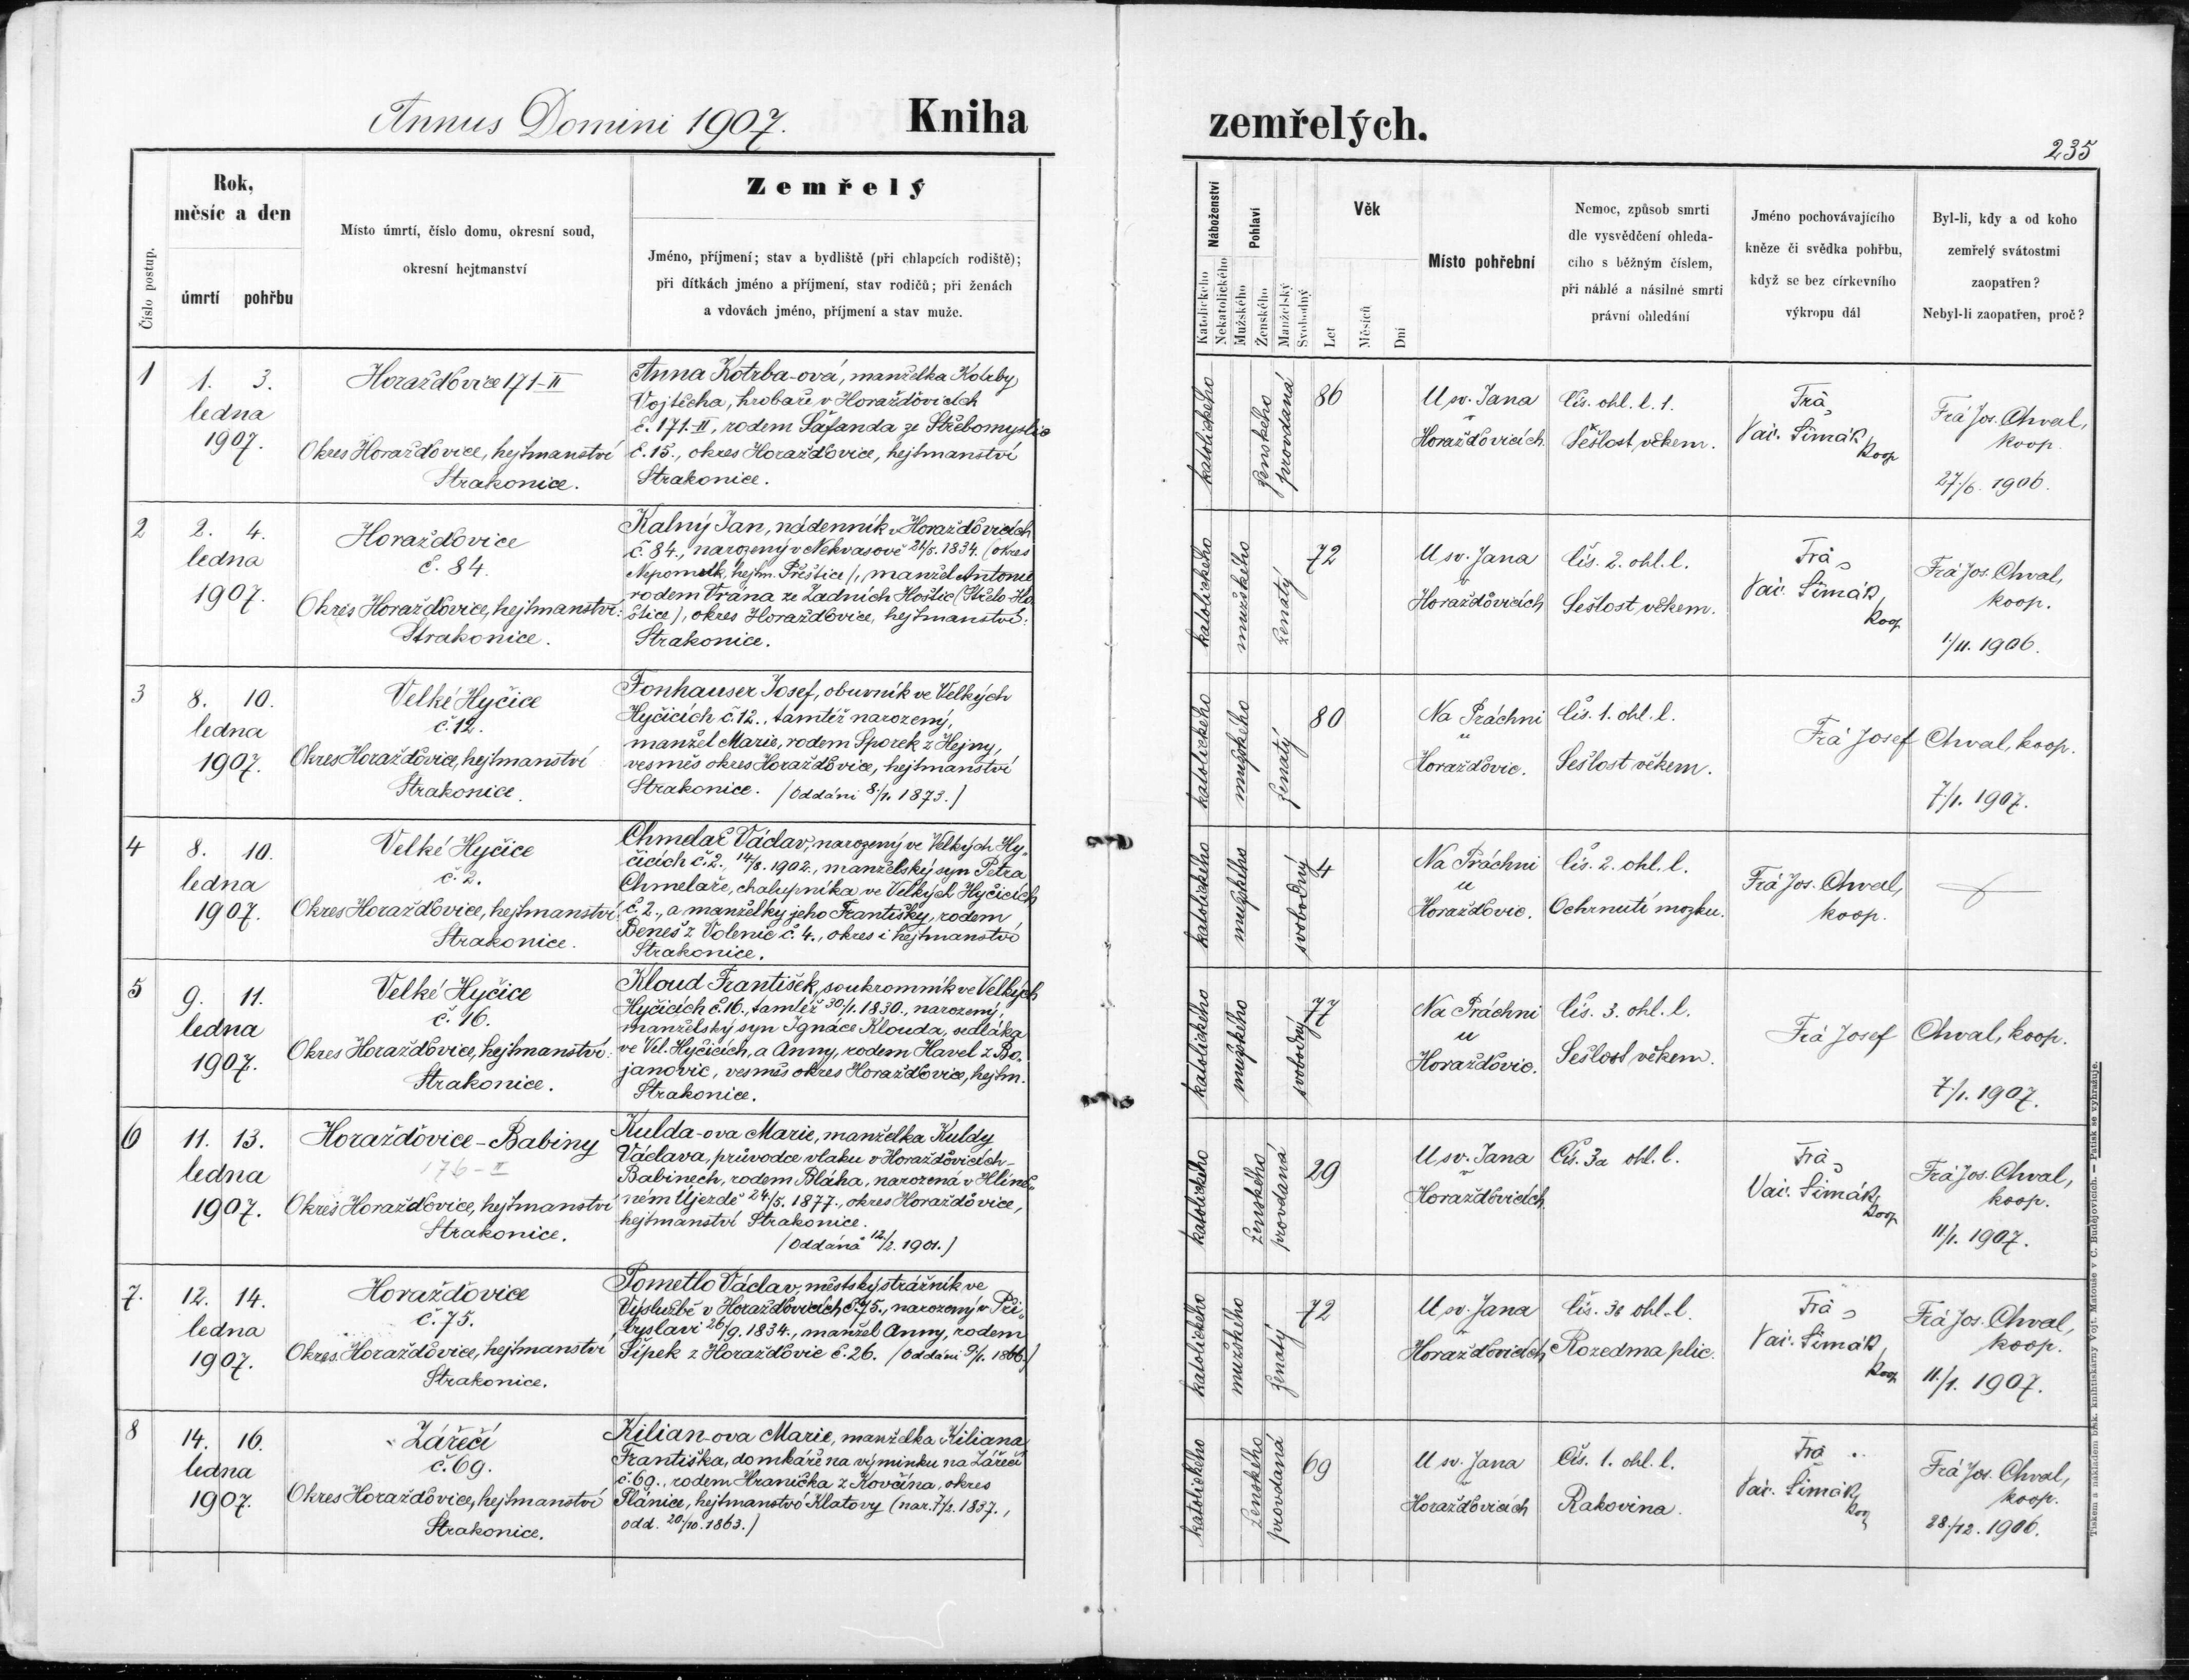 Annus Domini 1907. Kniha zemřelých.
235
Číslo postup.
Rok,
měsíc a den
úmrtí pohřbu
Místo úmrtí, číslo domu, okresní soud,
okresní hejtmanství
Zemřelý
Jméno, příjmení; stav a bydliště (při chlapcích rodiště);
při dítkách jméno a příjmení, stav rodičů; při ženách
a vdovách jméno, příjmení a stav muže.
Náboženství
Katolického
Nekatolického
Pohlaví
Mužského
Ženského
Manželský
Svobodný
Věk
Let
Měsíců
Dní
Místo pohřební
Nemoc, způsob smrti
dle vysvědčení ohleda-
cího s běžným číslem,
při náhlé a násilné smrti
právní ohledání
Jméno pochovávajícího
kněze či svědka pohřbu,
když se bez církevního
výkropu dál
Byl-li, kdy a od koho
zemřelý svátostmi
zaopatřen?
Nebyl-li zaopatřen, proč?
1
1. 3.
ledna
1907.
Horažďovice 171-II
Okres Horažďovice, hejtmanství
Strakonice.
Anna Kotrba-ová, manželka Kotrby
Vojtěcha, hrobaře v Horažďovicích
č. 171.-II, rodem Šafanda ze Střebomyslic
č. 15., okres Horažďovice, hejtmanství
Strakonice.
katolického
ženského
provdaná
86
U sv. Jana
v
Horažďovicích.
Čís. ohl. l. 1.
Sešlost věkem.
Frá
Vác. Šimák
koop
Frá Jos. Chval,
koop.
27./6. 1906.
2
2. 4.
ledna
1907.
Horažďovice
č. 84.
Okres Horažďovice, hejtmanství:
Strakonice.
Kalný Jan, nádenník v Horažďovicích
č. 84., narozený v Nekvasově 21/5. 1834. (okres
Nepomuk, hejtm. Přeštice), manžel Antonie
rodem Vrána ze Zadních Hoštic (Střelo-Ho
štice), okres Horažďovice, hejtmanství:
Strakonice.
katolického
mužského
ženatý
72
U sv. Jana
v
Horažďovicích
Čís. 2. ohl. l.
Sešlost věkem.
Frá
Vác. Šimák,
koop
Frá Jos. Chval,
koop.
1./11. 1906.
3
8. 10.
ledna
1907.
Velké Hyčice
č. 12.
Okres Horažďovice, hejtmanství
Strakonice.
Fonhauser Josef, obuvník ve Velkých
Hyčicích č. 12., tamtéž narozený,
manžel Marie, rodem Sporek z Hejny,
vesměs okres Horažďovice, hejtmanství
Strakonice. (Oddáni 8/1. 1873.)
katolického
mužského
ženatý
80
Na Práchni
u
Horažďovic.
Čís. 1. ohl. l.
Sešlost věkem.
Frá Josef Chval, koop.
7./1. 1907.
4
8. 10.
ledna
1907.
Velké Hyčice
č. 2.
Okres Horažďovice, hejtmanství
Strakonice.
Chmelař Václav, narozený ve Velkých Hy-
čicích č. 2. 14/8. 1902., manželský syn Petra
Chmelaře, chalupníka ve Velkých Hyčicích
č. 2., a manželky jeho Františky, rodem
Beneš z Volenic č. 4., okres i hejtmanství
Strakonice.
katolického
mužského
svobodný
4
Na Práchni
u
Horažďovic.
Čís. 2. ohl. l.
Ochrnutí mozku.
Frá Jos. Chval,
koop.
5
9. 11.
ledna
1907.
Velké Hyčice
č. 16.
Okres Horažďovice, hejtmanství:
Strakonice.
Kloud František, soukromník ve Velkých
Hyčicích č. 16., tamtéž 30/1. 1830., narozený,
manželský syn Ignáce Klouda, sedláka
ve Vel. Hyčicích, a Anny, rodem Havel z Bo-
janovic, vesměs okres Horažďovice, hejtm.
Strakonice.
katolického
mužského
svobodný
77
Na Práchni
u
Horažďovic.
Čís. 3. ohl. l.
Sešlost věkem.
Frá Josef Chval, koop.
7./1. 1907.
6
11. 13.
ledna
1907.
Horažďovice-Babiny
176-II
Okres Horažďovice, hejtmanství
Strakonice.
Kulda-ova Marie, manželka Kuldy
Václava, průvodce vlaku v Horažďovicích-
Babinech, rodem Bláha, narozená v Hlině-
ném Újezdě 24/5. 1877., okres Horažďovice,
hejtmanství Strakonice.
(Oddána 12./2. 1901.)
katolického
ženského
provdaná
29
U sv. Jana
v
Horažďovicích
Čís. 3a ohl. l.
Frá
Vác. Šimák,
koop
Frá Jos. Chval,
koop.
11/1. 1907.
7.
12. 14.
ledna
1907.
Horažďovice
č. 75.
Okres Horažďovice, hejtmanství
Strakonice.
Pometlo Václav, městský strážník ve
výslužbě v Horažďovicích, č. 75., narozený v Při-
byslavi 26/9. 1834., manžel Anny, rodem
Šípek z Horažďovic č. 26. (Oddáni 9/1. 1866.)
katolického
mužského
ženatý
72
U sv. Jana
v
Horažďovicích
Čís. ohl. l.
Rozedma plic.
Frá
Vác. Šimák,
koop
Frá Jos. Chval,
koop.
11./1. 1907.
8
14. 16.
ledna
1907.
Zářečí
č. 69.
Okres Horažďovice, hejtmanství
Strakonice.
Kilian-ova Marie, manželka Kiliana
Františka, domkáře na výminku na Zářečí
č. 69., rodem Hranička z Kovčína, okres
Plánice, hejtmanství Klatovy (nar. 7/2. 1837.,
odd. 20./10. 1863.)
katolického
ženského
provdaná
69
U sv. Jana
v
Horažďovicích
Čís. 1. ohl. l.
Rakovina.
Frá
Vác. Šimák,
koop
Frá Jos. Chval,
koop.
28./12. 1906.
Tiskem a nákladem bisk. knihtiskárny Vojt. Matouše v Č. Budějovicích. — Patisk se vyhražuje.